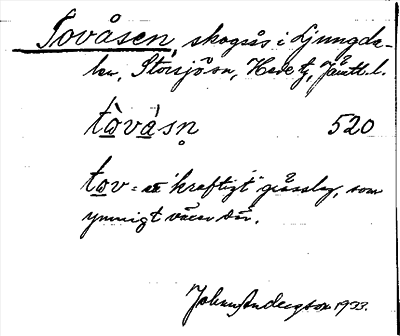 Tovåsen, skogsås i Ljungda-
len, Storsjö sn, Hede tg, Jämtl. l.
tòvàsn̥ 520
tov = ett "kraftigt" grässlag, som
ymnigt växer där.
Johan Andersson 1933.